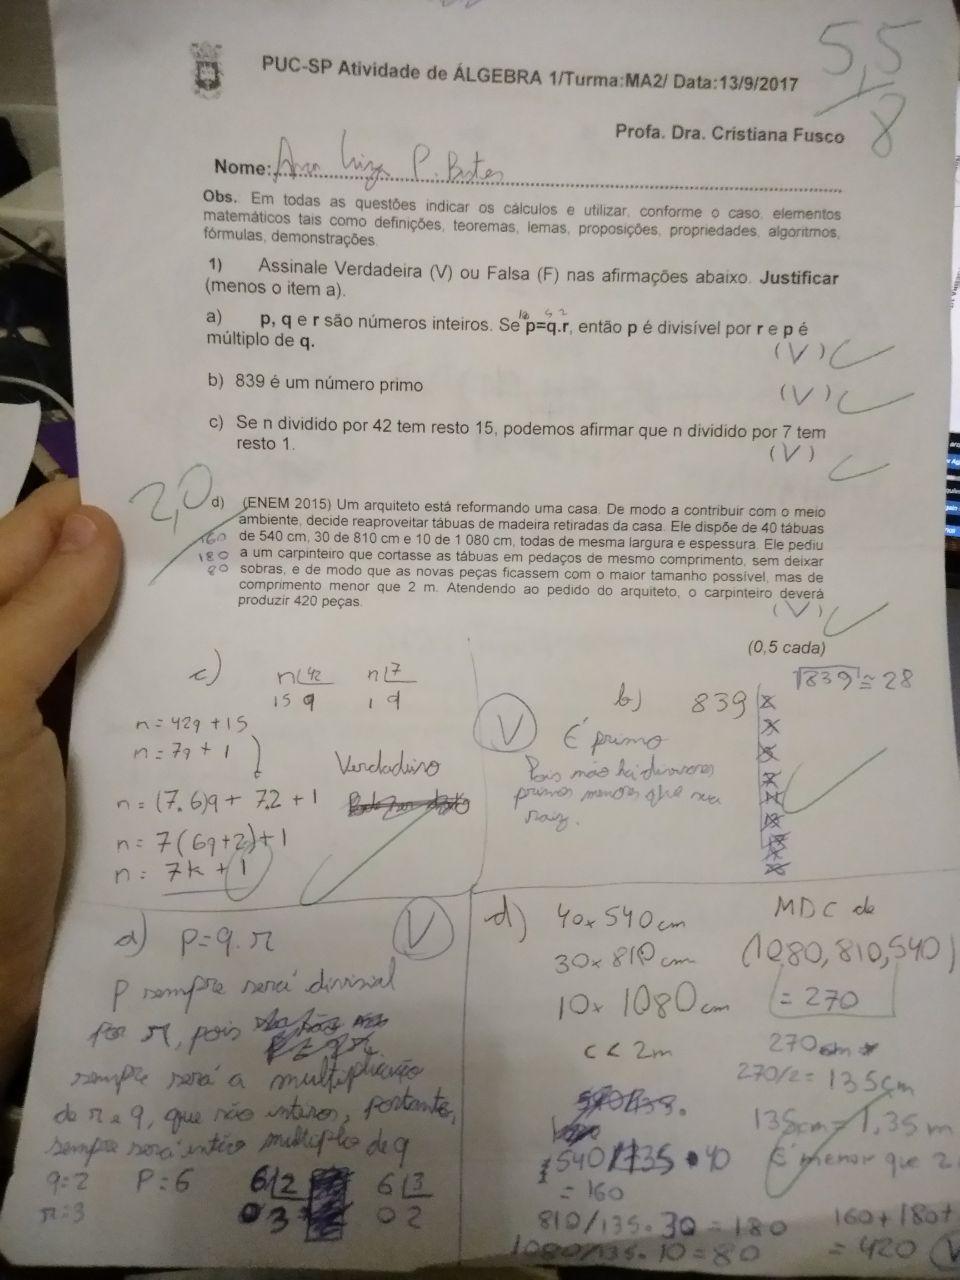 5,5
8
PUC-SP Atividade de ÁLGEBRA 1/Turma:MA2/ Data:13/9/2017
Profa. Dra. Cristiana Fusco
Nome: P.
Obs. Em todas as questões indicar os cálculos e utilizar, conforme o caso, elementos
matemáticos tais como definições, teoremas, lemas, proposições, propriedades, algoritmos,
fórmulas, demonstrações.
1) Assinale Verdadeira (V) ou Falsa (F) nas afirmações abaixo. Justificar
(menos o item a).
a) p, q e r são números inteiros. Se p=q.r, então p é divisível por r e p é
múltiplo de q.
(V)
b) 839 é um número primo
(V)
c) Se n dividido por 42 tem resto 15, podemos afirmar que n dividido por 7 tem
resto 1.
(V)
2,0
d) (ENEM 2015) Um arquiteto está reformando uma casa. De modo a contribuir com o meio
ambiente, decide reaproveitar tábuas de madeira retiradas da casa. Ele dispõe de 40 tábuas
160 de 540 cm, 30 de 810 cm e 10 de 1 080 cm, todas de mesma largura e espessura. Ele pediu
180 a um carpinteiro que cortasse as tábuas em pedaços de mesmo comprimento, sem deixar
80 sobras, e de modo que as novas peças ficassem com o maior tamanho possível, mas de
comprimento menor que 2 m. Atendendo ao pedido do arquiteto, o carpinteiro deverá
produzir 420 peças.
(V)
(0,5 cada)
c)
n 42
15 q
n 7
1 q
n = 42q + 15
n = 7q + 1
Verdadeiro
n = (7.6)q + 7.2 + 1
n = 7(6q+2)+1
n = 7k + 1
b) 839
√839 ≅ 28
V
É primo
Pois não há divisores
primos menores que sua
raiz.
a) P=q.r
V
P sempre será divisível
por r, pois
sempre será a multiplicação
de r e q, que são inteiros, portanto,
sempre será então múltiplo de q
q=2 P=6 6 2 6 3
r=3 0 3 0 2
d) 40x 540cm
30x 810cm
10x 1080cm
c < 2m
MDC de
(1080, 810, 540)
= 270
270cm
270/2= 135cm
135cm= 1,35 m
É menor que 2
540/135 • 40
= 160
810/135. 30 = 180
1080/135. 10 = 80
160+ 180+
= 420 V